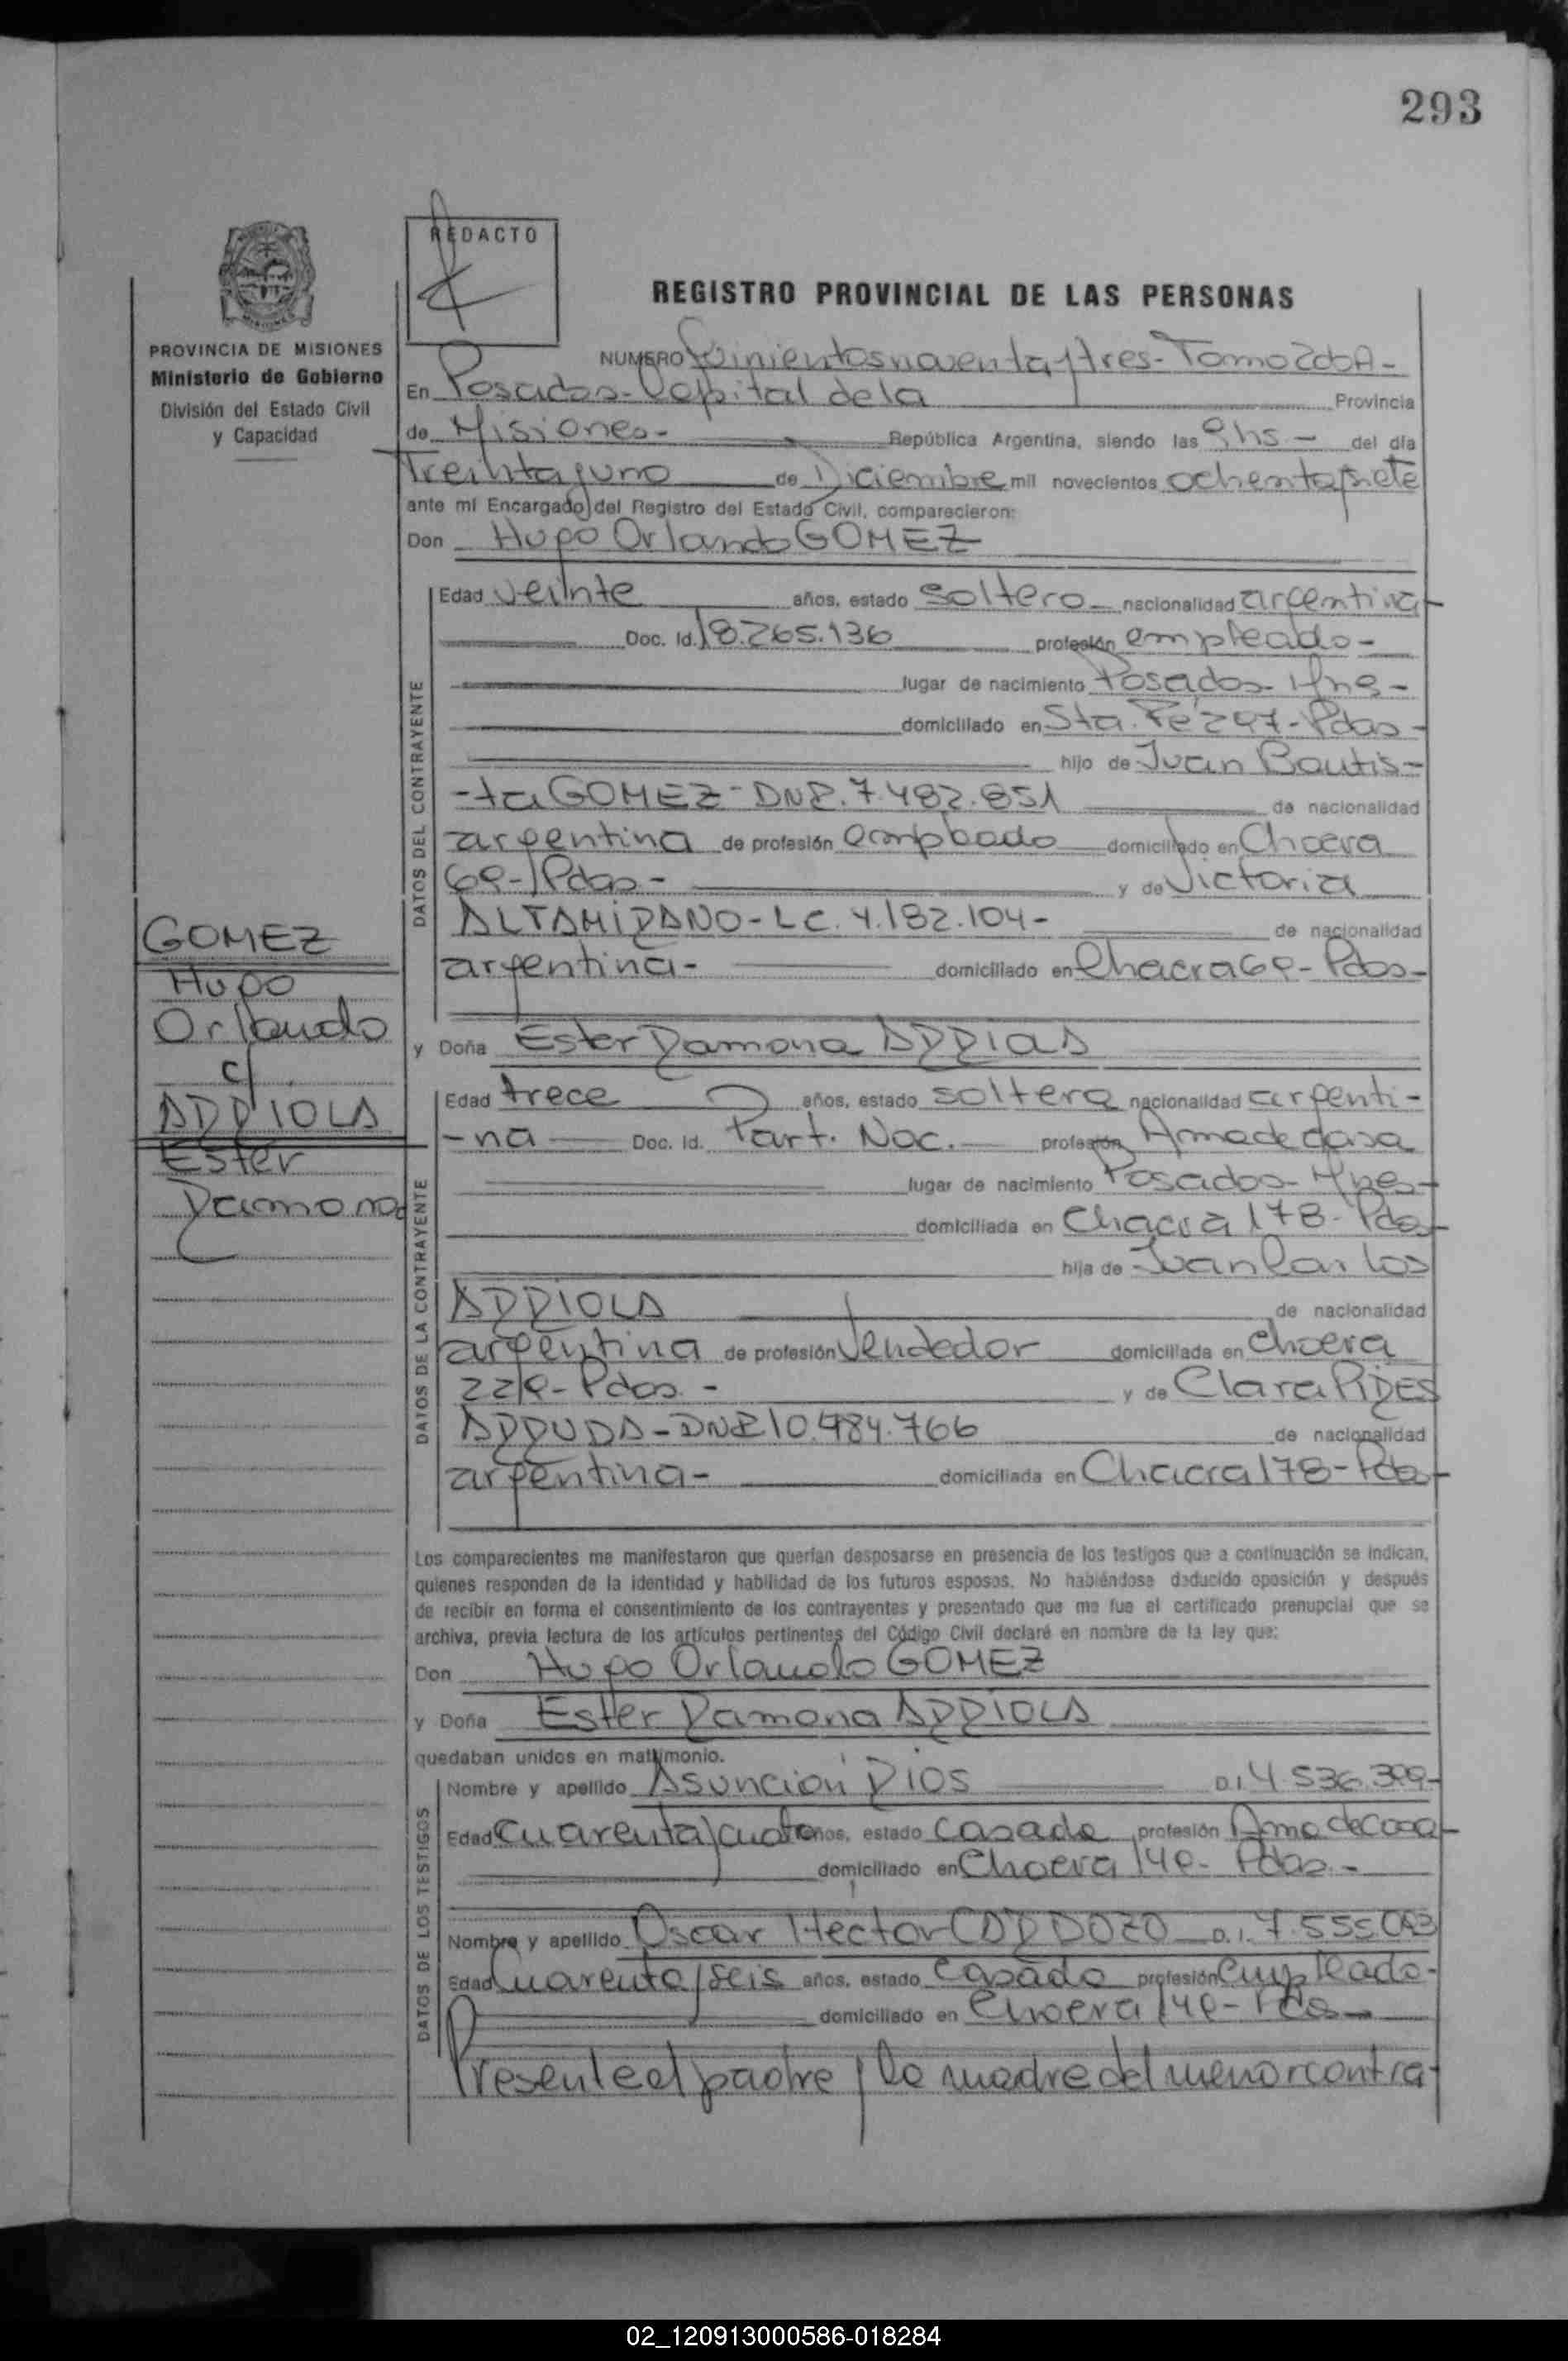 293
REDACTO
REGISTRO PROVINCIAL DE LAS PERSONAS
PROVINCIA DE MISIONES
Ministerio de Gobierno
División del Estado Civil
y Capacidad
NUMERO Quinientos noventa y tres - Tomo 2do A -
En Posadas - Capital de la Provincia
de Misiones - República Argentina, siendo las 9 hs - del día
Treinta y uno de Diciembre mil novecientos ochenta y siete
ante mí Encargado del Registro del Estado Civil, comparecieron:
Don Hugo Orlando GOMEZ
DATOS DEL CONTRAYENTE
Edad veinte años, estado soltero - nacionalidad argentina
Doc. Id. 18.265.136 profesión empleado -
lugar de nacimiento Posadas - Mnes -
domiciliado en Sta. Fé 297 - Pdas -
hijo de Juan Bautis-
-ta GOMEZ - DNI. 7.482.851 de nacionalidad
argentina de profesión empleado domiciliado en Chacra
69 - Pdas - y de Victoria
ALTAMIRANO - LC. 4.182.104 - de nacionalidad
argentina - domiciliado en Chacra 69 - Pdas -
GOMEZ
Hugo
Orlando
c/
ARRIOLA
Ester
Ramona
y Doña Ester Ramona
DATOS DE LA CONTRAYENTE
Edad trece años, estado soltera nacionalidad argenti-
-na Doc. Id. Part. Nac. profesión Ama de casa
lugar de nacimiento Posadas - Mnes -
domiciliada en Chacra 178 - Pdas -
hija de Juan Carlos
ARRIOLA de nacionalidad
argentina de profesión Vendedor domiciliada en Chacra
229 - Pdas. - y de Clara
ARRUDA - DNI 10.484.766 de nacionalidad
argentina - domiciliada en Chacra 178 - Pdas -
Los comparecientes me manifestaron que querían desposarse en presencia de los testigos que a continuación se indican,
quienes responden de la identidad y habilidad de los futuros esposos. No habiéndose deducido oposición y después
de recibir en forma el consentimiento de los contrayentes y presentado que me fue el certificado prenupcial que se
archiva, previa lectura de los artículos pertinentes del Código Civil declaré en nombre de la ley que:
Don Hugo Orlando GOMEZ
y Doña Ester Ramona ARRIOLA
quedaban unidos en matrimonio.
DATOS DE LOS TESTIGOS
Nombre y apellido Asunción RIOS D.I. 4.536.399 -
Edad Cuarenta y cuatro años, estado casada profesión Ama de casa
domiciliado en Chacra 149 - Pdas. -
Nombre y apellido Oscar Hector CARDOZO D.I. 7.555.
Edad Cuarenta y seis años, estado casado profesión empleado -
domiciliado en Chacra 149 - Pdas -
Presente el padre y la madre del menor contra-
02_120913000586-018284